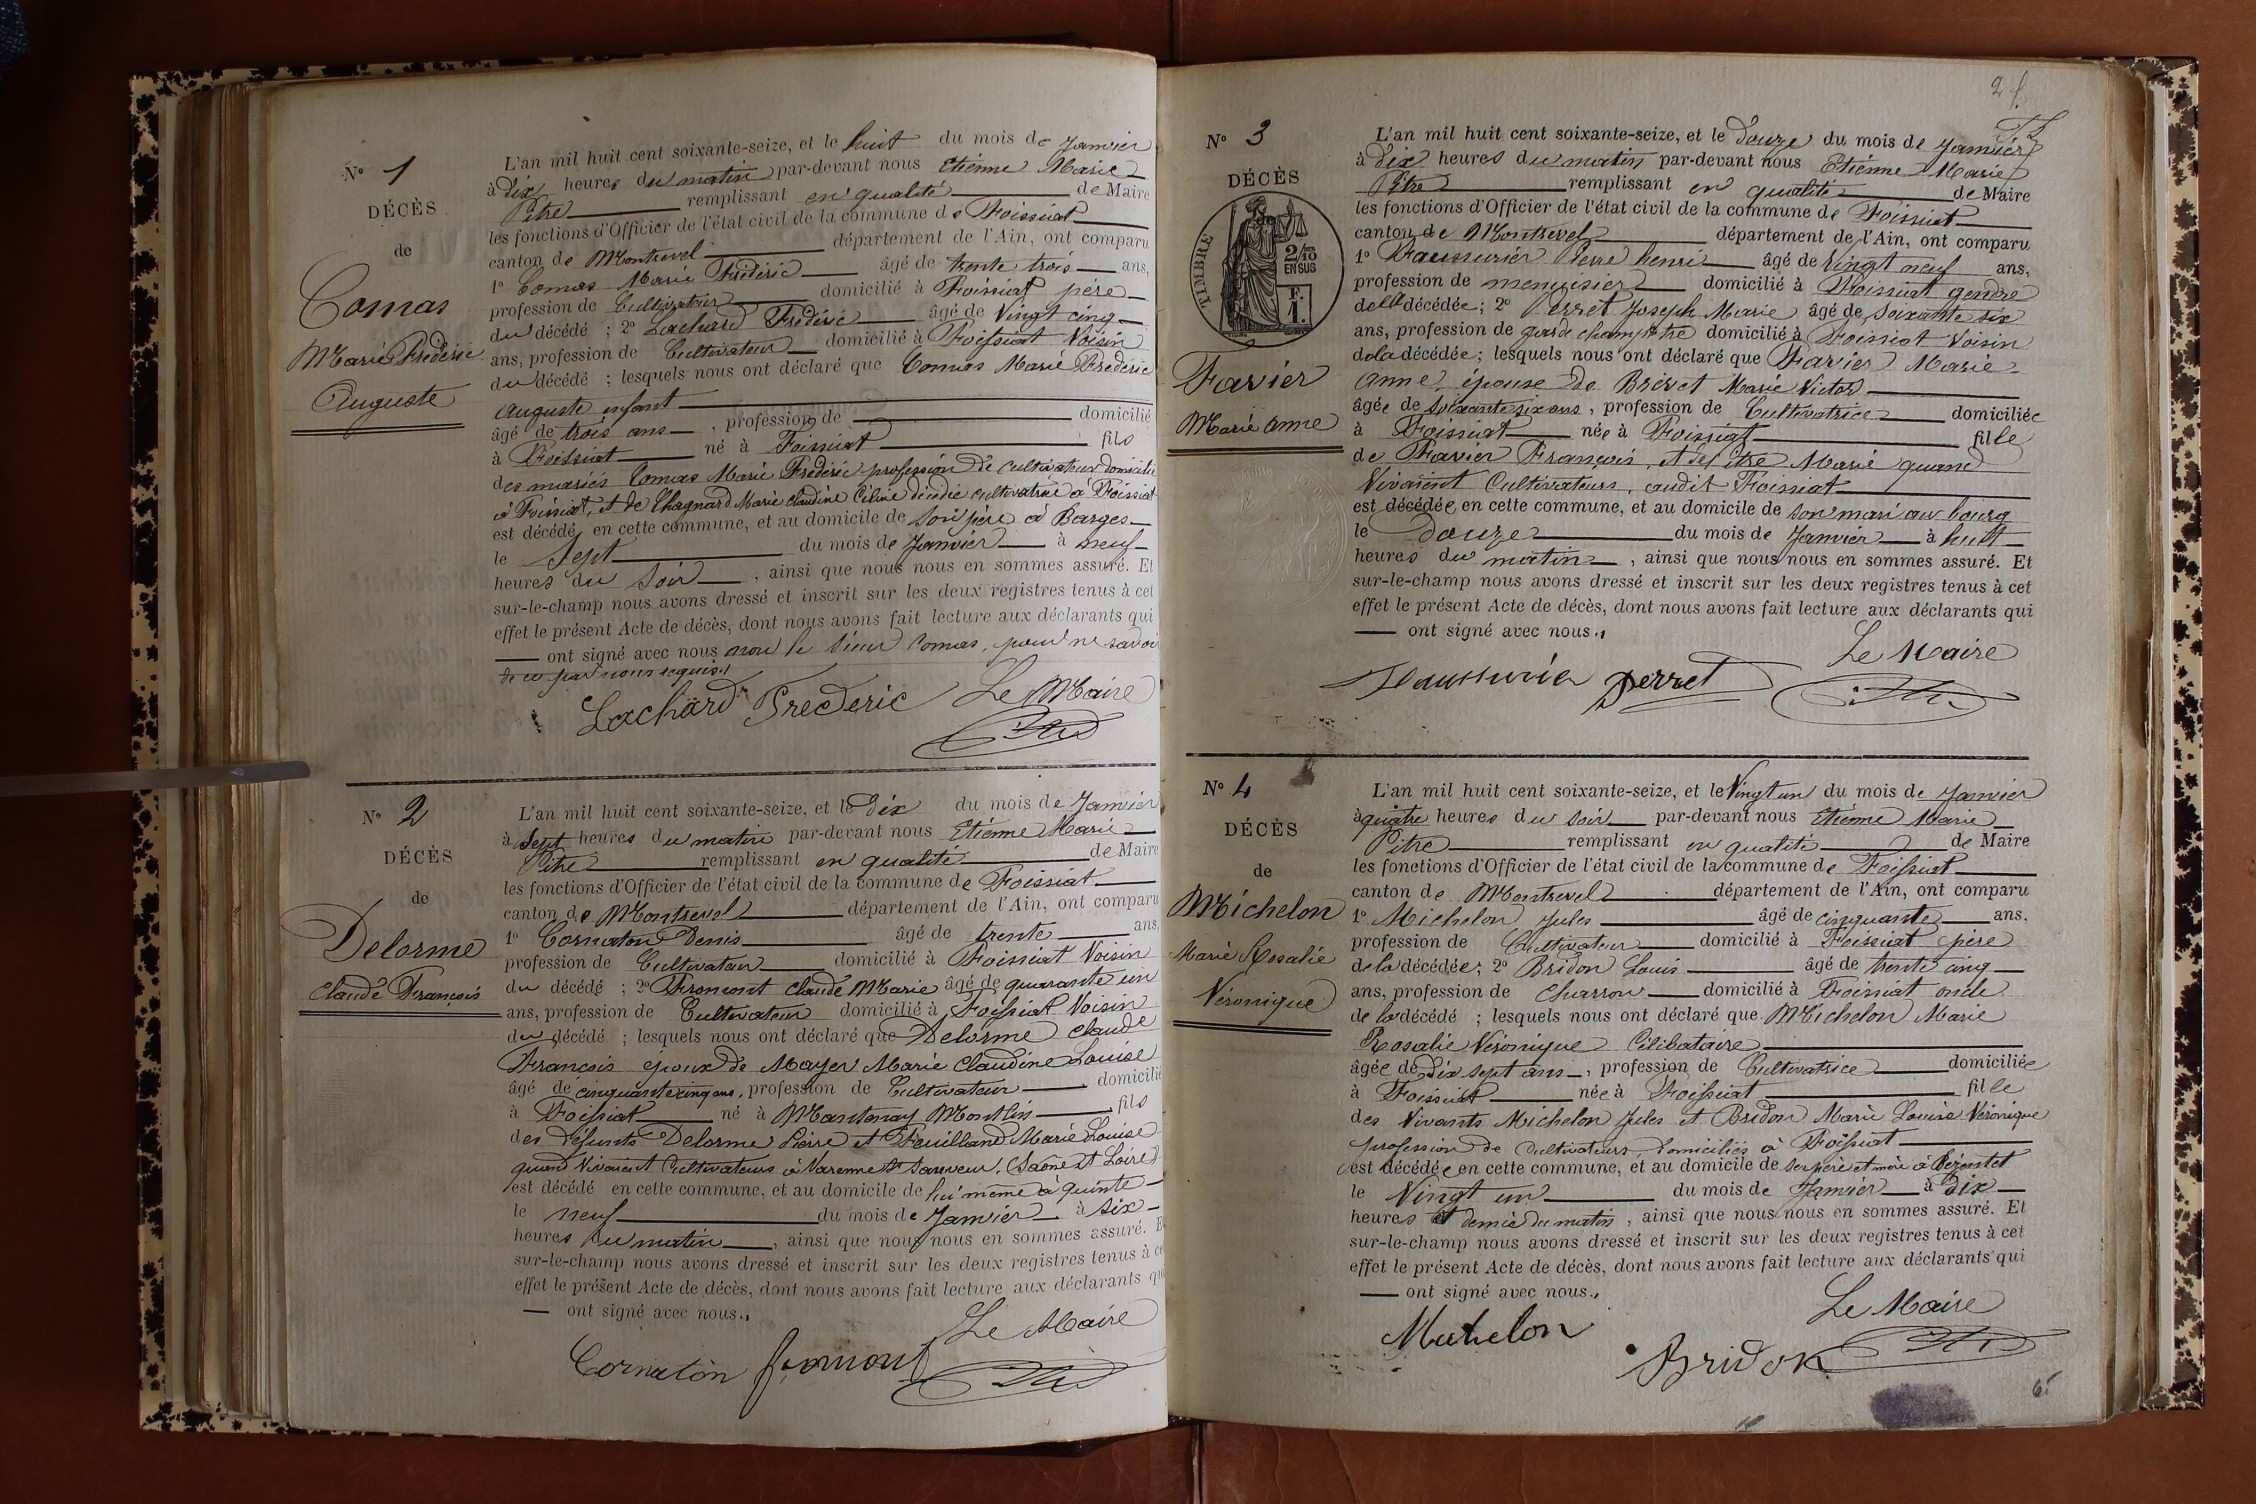 N° 1
DÉCÈS
de
Comas
Marie Frédéric
Auguste
L'an mil huit cent soixante-seize, et le huit du mois de Janvier
à Dix heures du matin par-devant nous Etienne Marie
Pitre remplissant en qualité de Maire
les fonctions d'Officier de l'état civil de la commune de Foissiat
canton de Montrevel département de l'Ain, ont comparu
1° Comas Marie Frédéric âgé de trente trois ans,
profession de Cultivateur domicilié à Foissiat père
du décédé ; 2° Lachard Frédéric âgé de Vingt cinq
ans, profession de Cultivateur domicilié à Foissiat Voisin
du décédé ; lesquels nous ont déclaré que Comas Marie Frédéric
Auguste enfant
âgé de trois ans , profession de domicilié
à Foissiat né à Foissiat fils
des mariés Comas Marie Frédéric profession de cultivateur domicilié
à Foissiat, et de Chagnard Marie Claudine Céline décédée cultivatrice à Foissiat
est décédé en cette commune, et au domicile de son père à Barges
le Sept du mois de Janvier à neuf
heures du Soir , ainsi que nous nous en sommes assuré. Et
sur-le-champ nous avons dressé et inscrit sur les deux registres tenus à cet
effet le présent Acte de décès, dont nous avons fait lecture aux déclarants qui
ont signé avec nous non le Sieur Comas, pour ne savoir
de ce par nous requis.
Lachard Frederic Le Maire
N° 2
DÉCÈS
de
Delorme
Claude François
L'an mil huit cent soixante-seize, et le Dix du mois de Janvier
à Sept heures du matin par-devant nous Etienne Marie
Pitre remplissant en qualité de Maire
les fonctions d'Officier de l'état civil de la commune de Foissiat
canton de Montrevel département de l'Ain, ont comparu
1° Cornaton Denis âgé de trente ans,
profession de Cultivateur domicilié à Foissiat Voisin
du décédé ; 2° Fromont Claude Marie âgé de quarante un
ans, profession de Cultivateur domicilié à Foissiat Voisin
du décédé ; lesquels nous ont déclaré que Delorme Claude
François époux de Mayer Marie Claudine Louise
âgé de cinquante cinq ans, profession de Cultivateur domicilié
à Foissiat né à Mantenay Montlin fils
des défunts Delorme Pierre et Feuilland Marie Louise
quand Vivaient Cultivateurs à Varenne St Sauveur, (Saône et Loire)
est décédé en cette commune, et au domicile de lui même à quinte
le neuf du mois de Janvier à six
heures du matin , ainsi que nous nous en sommes assuré. Et
sur-le-champ nous avons dressé et inscrit sur les deux registres tenus à cet
effet le présent Acte de décès, dont nous avons fait lecture aux déclarants qui
ont signé avec nous.
Le Maire
Cornaton Fromont
2 f.
N° 3
DÉCÈS
TIMBRE
2/10
EN SUS
F.
1.
Favier
Marie Anne
L'an mil huit cent soixante-seize, et le Douze du mois de Janvier
à Dix heures du matin par-devant nous Etienne Marie
Pitre remplissant en qualité de Maire
les fonctions d'Officier de l'état civil de la commune de Foissiat
canton de Montrevel département de l'Ain, ont comparu
1° Faussurier Pierre henri âgé de Vingt neuf ans,
profession de menuisier domicilié à Foissiat gendre
de la décédée ; 2° Perret Joseph Marie âgé de soixante six
ans, profession de garde champêtre domicilié à Foissiat Voisin
de la décédée ; lesquels nous ont déclaré que Favier Marie
Anne, épouse de Brévet Marie Victor
âgée de Soixante six ans , profession de Cultivatrice domiciliée
à Foissiat née à Foissiat fille
de Favier François, et de Pitre Marie quand
Vivaient Cultivateurs, audit Foissiat
est décédée en cette commune, et au domicile de son mari au bourg
le Douze du mois de Janvier à huit
heures du matin , ainsi que nous nous en sommes assuré. Et
sur-le-champ nous avons dressé et inscrit sur les deux registres tenus à cet
effet le présent Acte de décès, dont nous avons fait lecture aux déclarants qui
ont signé avec nous.
Le Maire
Faussurier Perret
N° 4
DÉCÈS
de
Michelon
Marie Rosalie
Véronique
L'an mil huit cent soixante-seize, et le Vingt un du mois de Janvier
à quatre heures du soir par-devant nous Etienne Marie
Pitre remplissant en qualité de Maire
les fonctions d'Officier de l'état civil de la commune de Foissiat
canton de Montrevel département de l'Ain, ont comparu
1° Michelon Jules âgé de cinquante ans,
profession de Cultivateur domicilié à Foissiat père
de la décédée ; 2° Bridon Louis âgé de trente cinq
ans, profession de Charron domicilié à Foissiat oncle
de la décédé ; lesquels nous ont déclaré que Michelon Marie
Rosalie Véronique Célibataire
âgée de Dix sept ans , profession de Cultivatrice domiciliée
à Foissiat née à Foissiat fille
des Vivants Michelon Jules et Bridon Marie Louise Véronique
profession de Cultivateurs domiciliés à Foissiat
est décédée en cette commune, et au domicile de ses père et mère à Bézentet
le Vingt un du mois de Janvier à dix
heures et demie du matin , ainsi que nous nous en sommes assuré. Et
sur-le-champ nous avons dressé et inscrit sur les deux registres tenus à cet
effet le présent Acte de décès, dont nous avons fait lecture aux déclarants qui
ont signé avec nous.
Le Maire
Michelon
Bridon